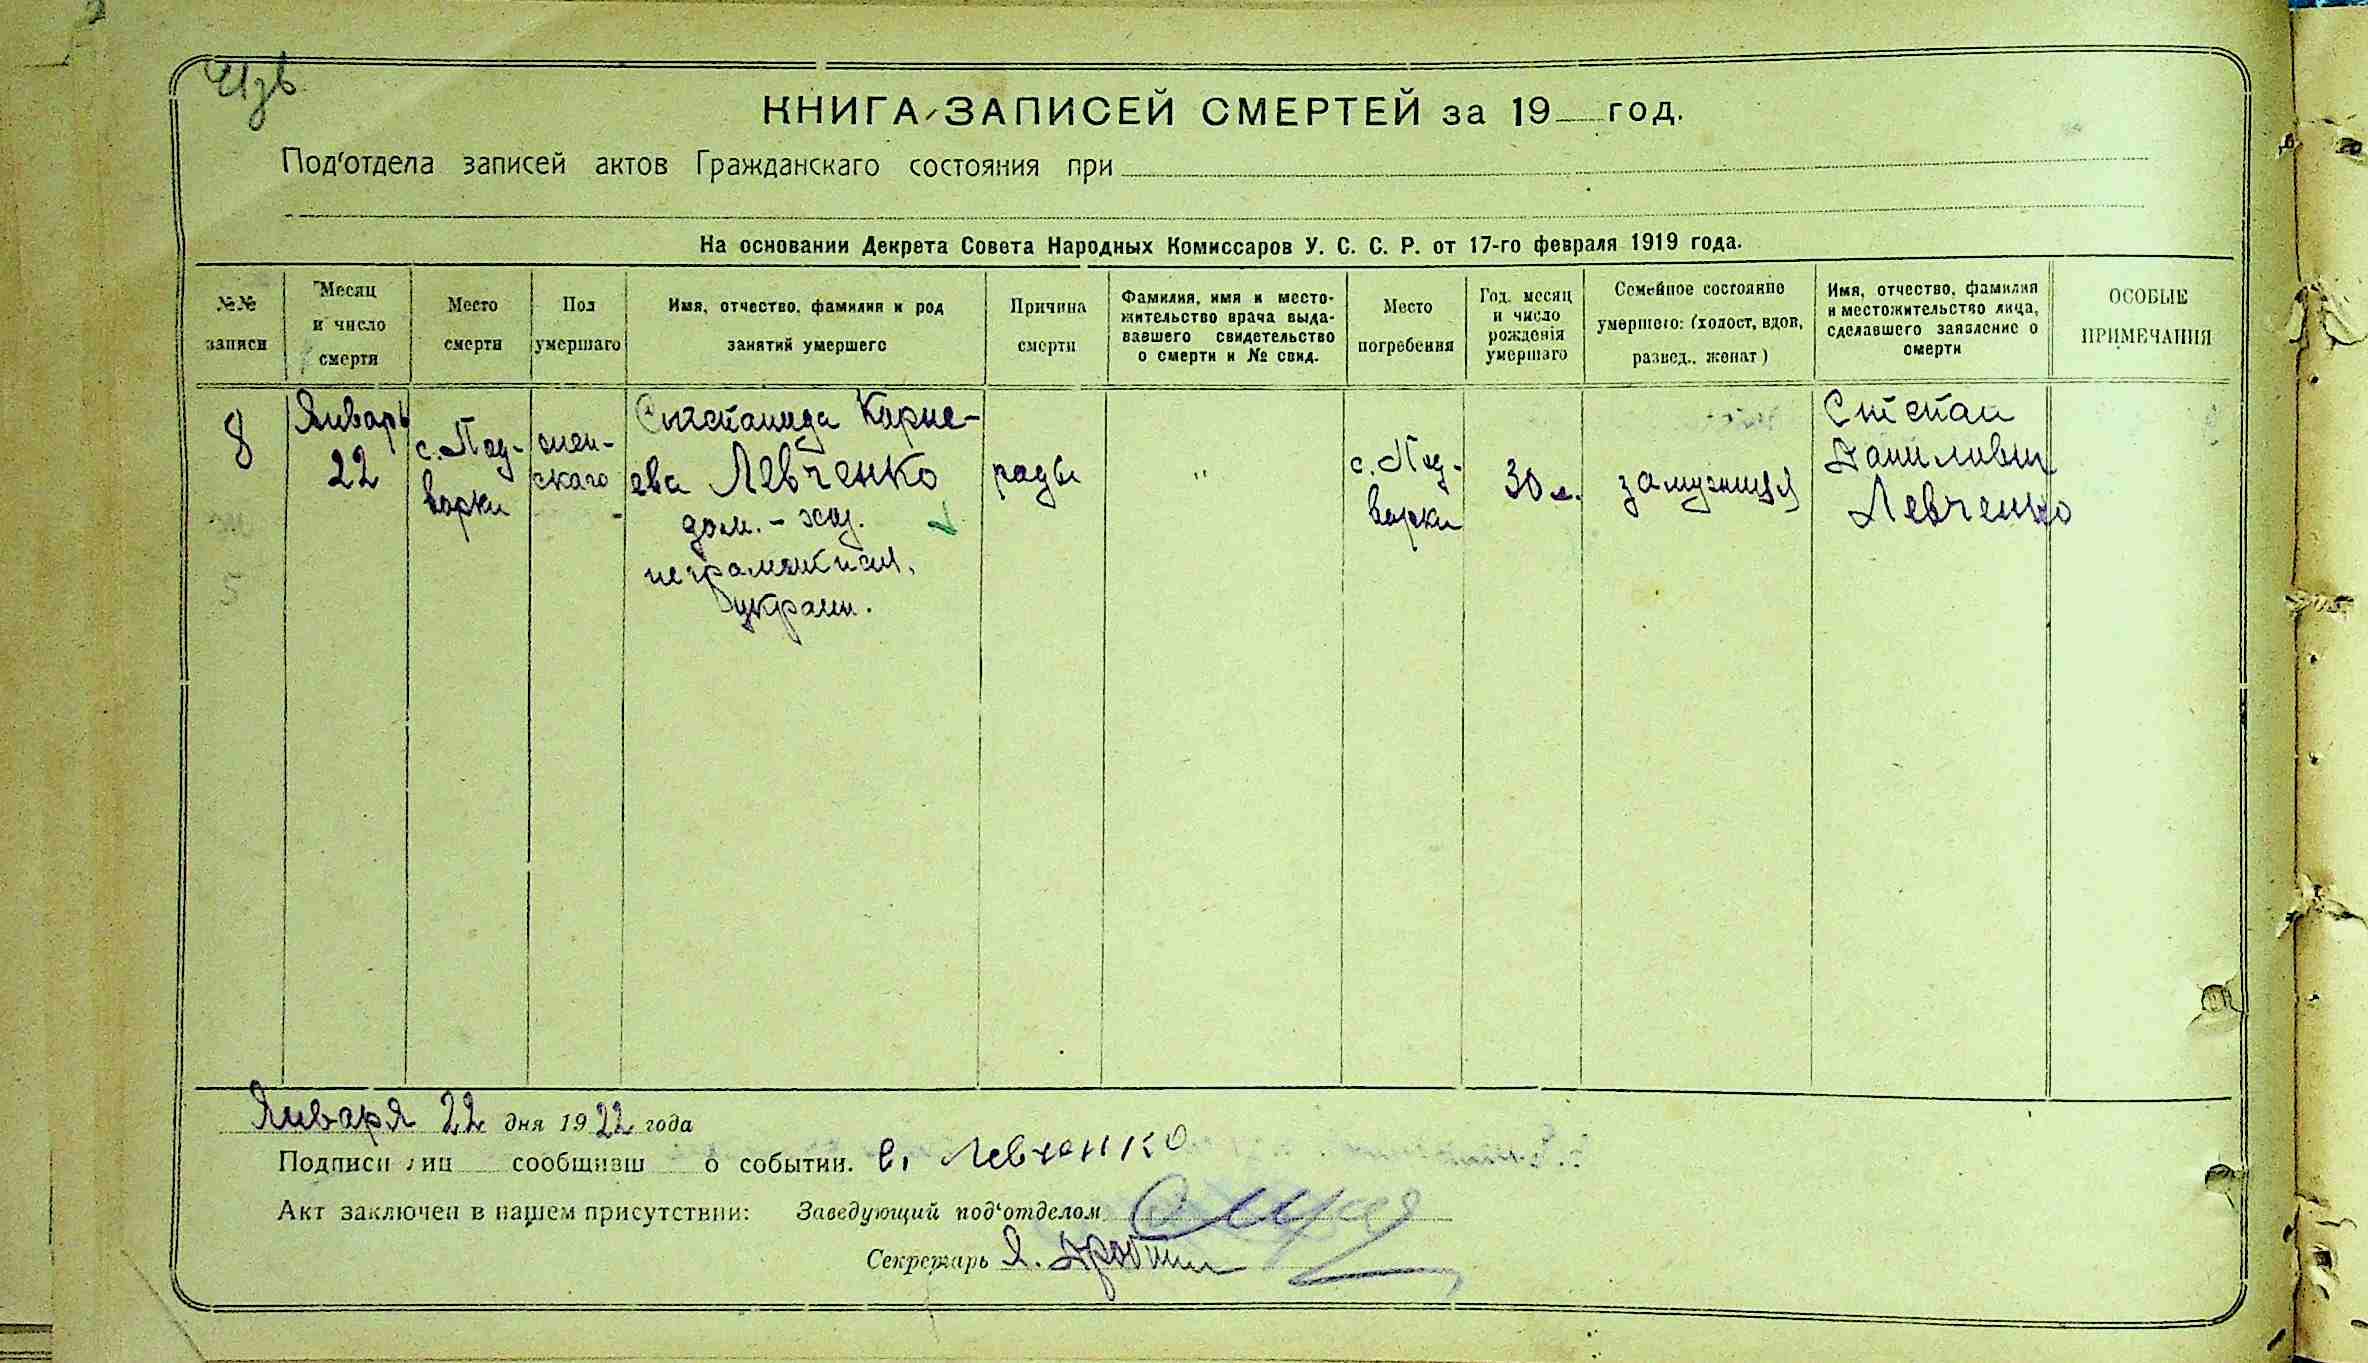 Изв
КНИГА ЗАПИСЕЙ СМЕРТЕЙ за 19 год.
Под'отдела записей актов Гражданскаго состояния при
На основании Декрета Совета Народных Комиссаров У. С. С. Р. от 17-го февраля 1919 года.
№№ записи
Месяц и число смерти
Место смерти
Пол умершаго
Имя, отчество, фамилия и род занятий умершего
Причина смерти
Фамилия, имя и место-жительство врача выда-вавшего свидетельство о смерти и № свид.
Место погребения
Год, месяц и число рождения умершаго
Семейное состояние умершего: (холост, вдов, развед., женат)
Имя, отчество, фамилия и местожительство лица, сделавшего заявление о смерти
ОСОБЫЕ ПРИМЕЧАНИЯ
8
Январь
22
с. Под-
варки
жен-
скаго
Стетанида Корне-
ева Левченко
дом. - хоз.
неграмотная,
украин.
роды
"
с. Под-
варки
30 л.
замужняя
Степан
Данилович
Левченко
Января 22 дня 1922 года
Подписи лиц сообщивш о событии. С. Левченко
Акт заключен в нашем присутствии: Заведующий под'отделом
Секретарь Я.